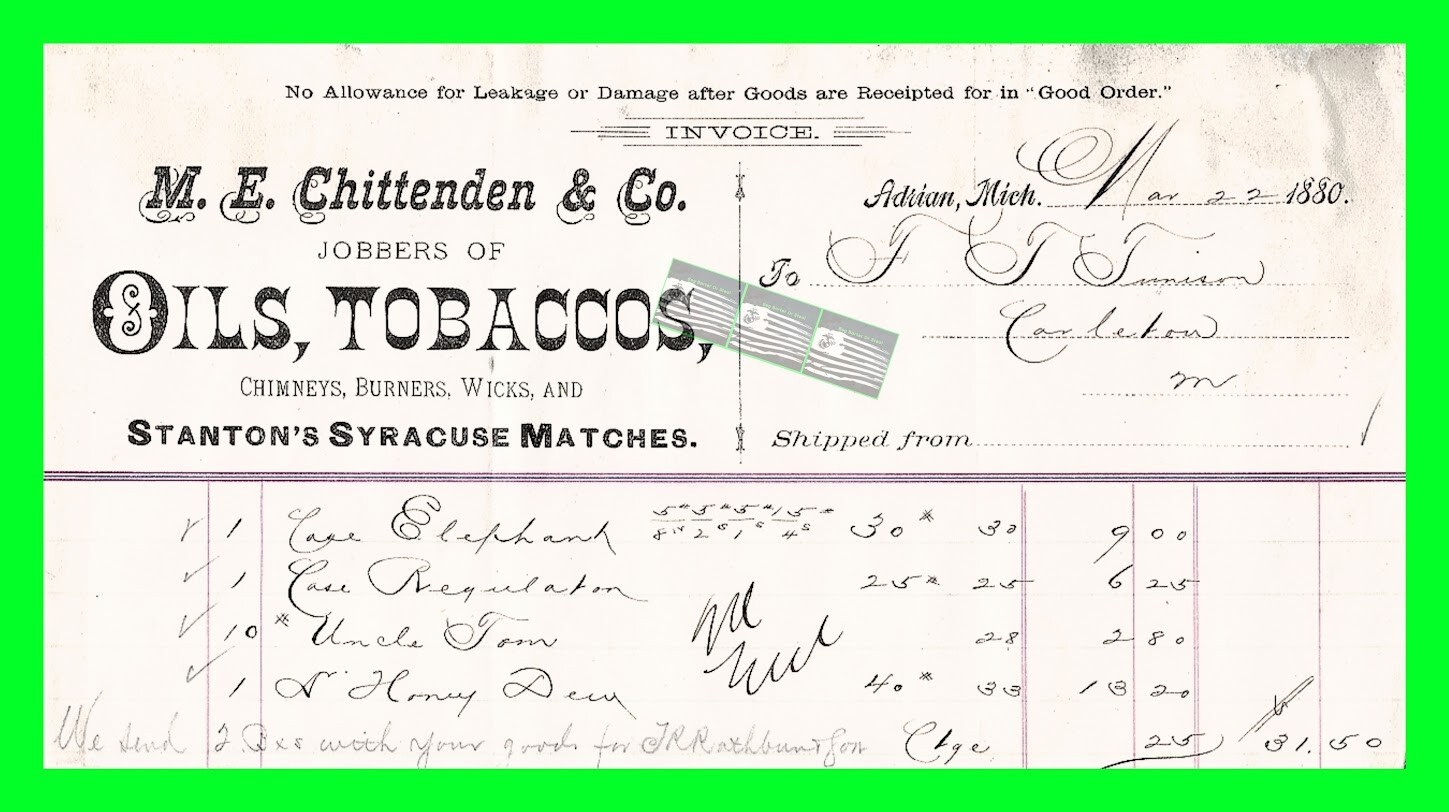 No Allowance for Leakage or Damage after Goods are Receipted for in "Good Order."
INVOICE.
M. E. Chittenden & Co.
JOBBERS OF
OILS, TOBACCOS,
CHIMNEYS, BURNERS, WICKS, AND
STANTON'S SYRACUSE MATCHES.
Adrian, Mich. Mar 22 1880.
To F T Tunison
Carleton
m
Shipped from
1 Case Elephant 30# 30 9 00
1 Case Regulator 25# 25 6 25
10# Uncle Tom 28 2 80
1 Honey Dew 40# 33 13 20
We send 2 Bxs with your goods for Ctge 25 31.50